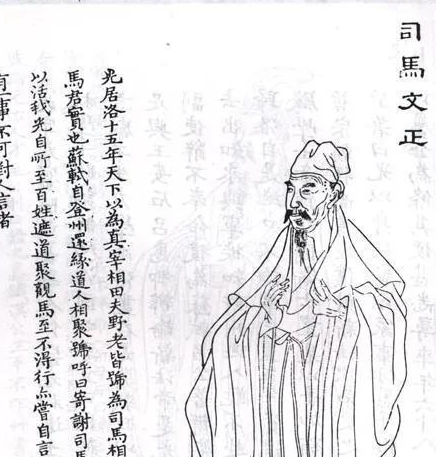 司馬文正
光居洛十五年天下以為真宰相田夫野老皆號為司馬相
馬君實也蘇軾自登州還緣道人相聚號呼曰寄謝司馬
以活我光自所至百姓遮道聚觀馬至不得行亦嘗自言
有一事不可對人言者